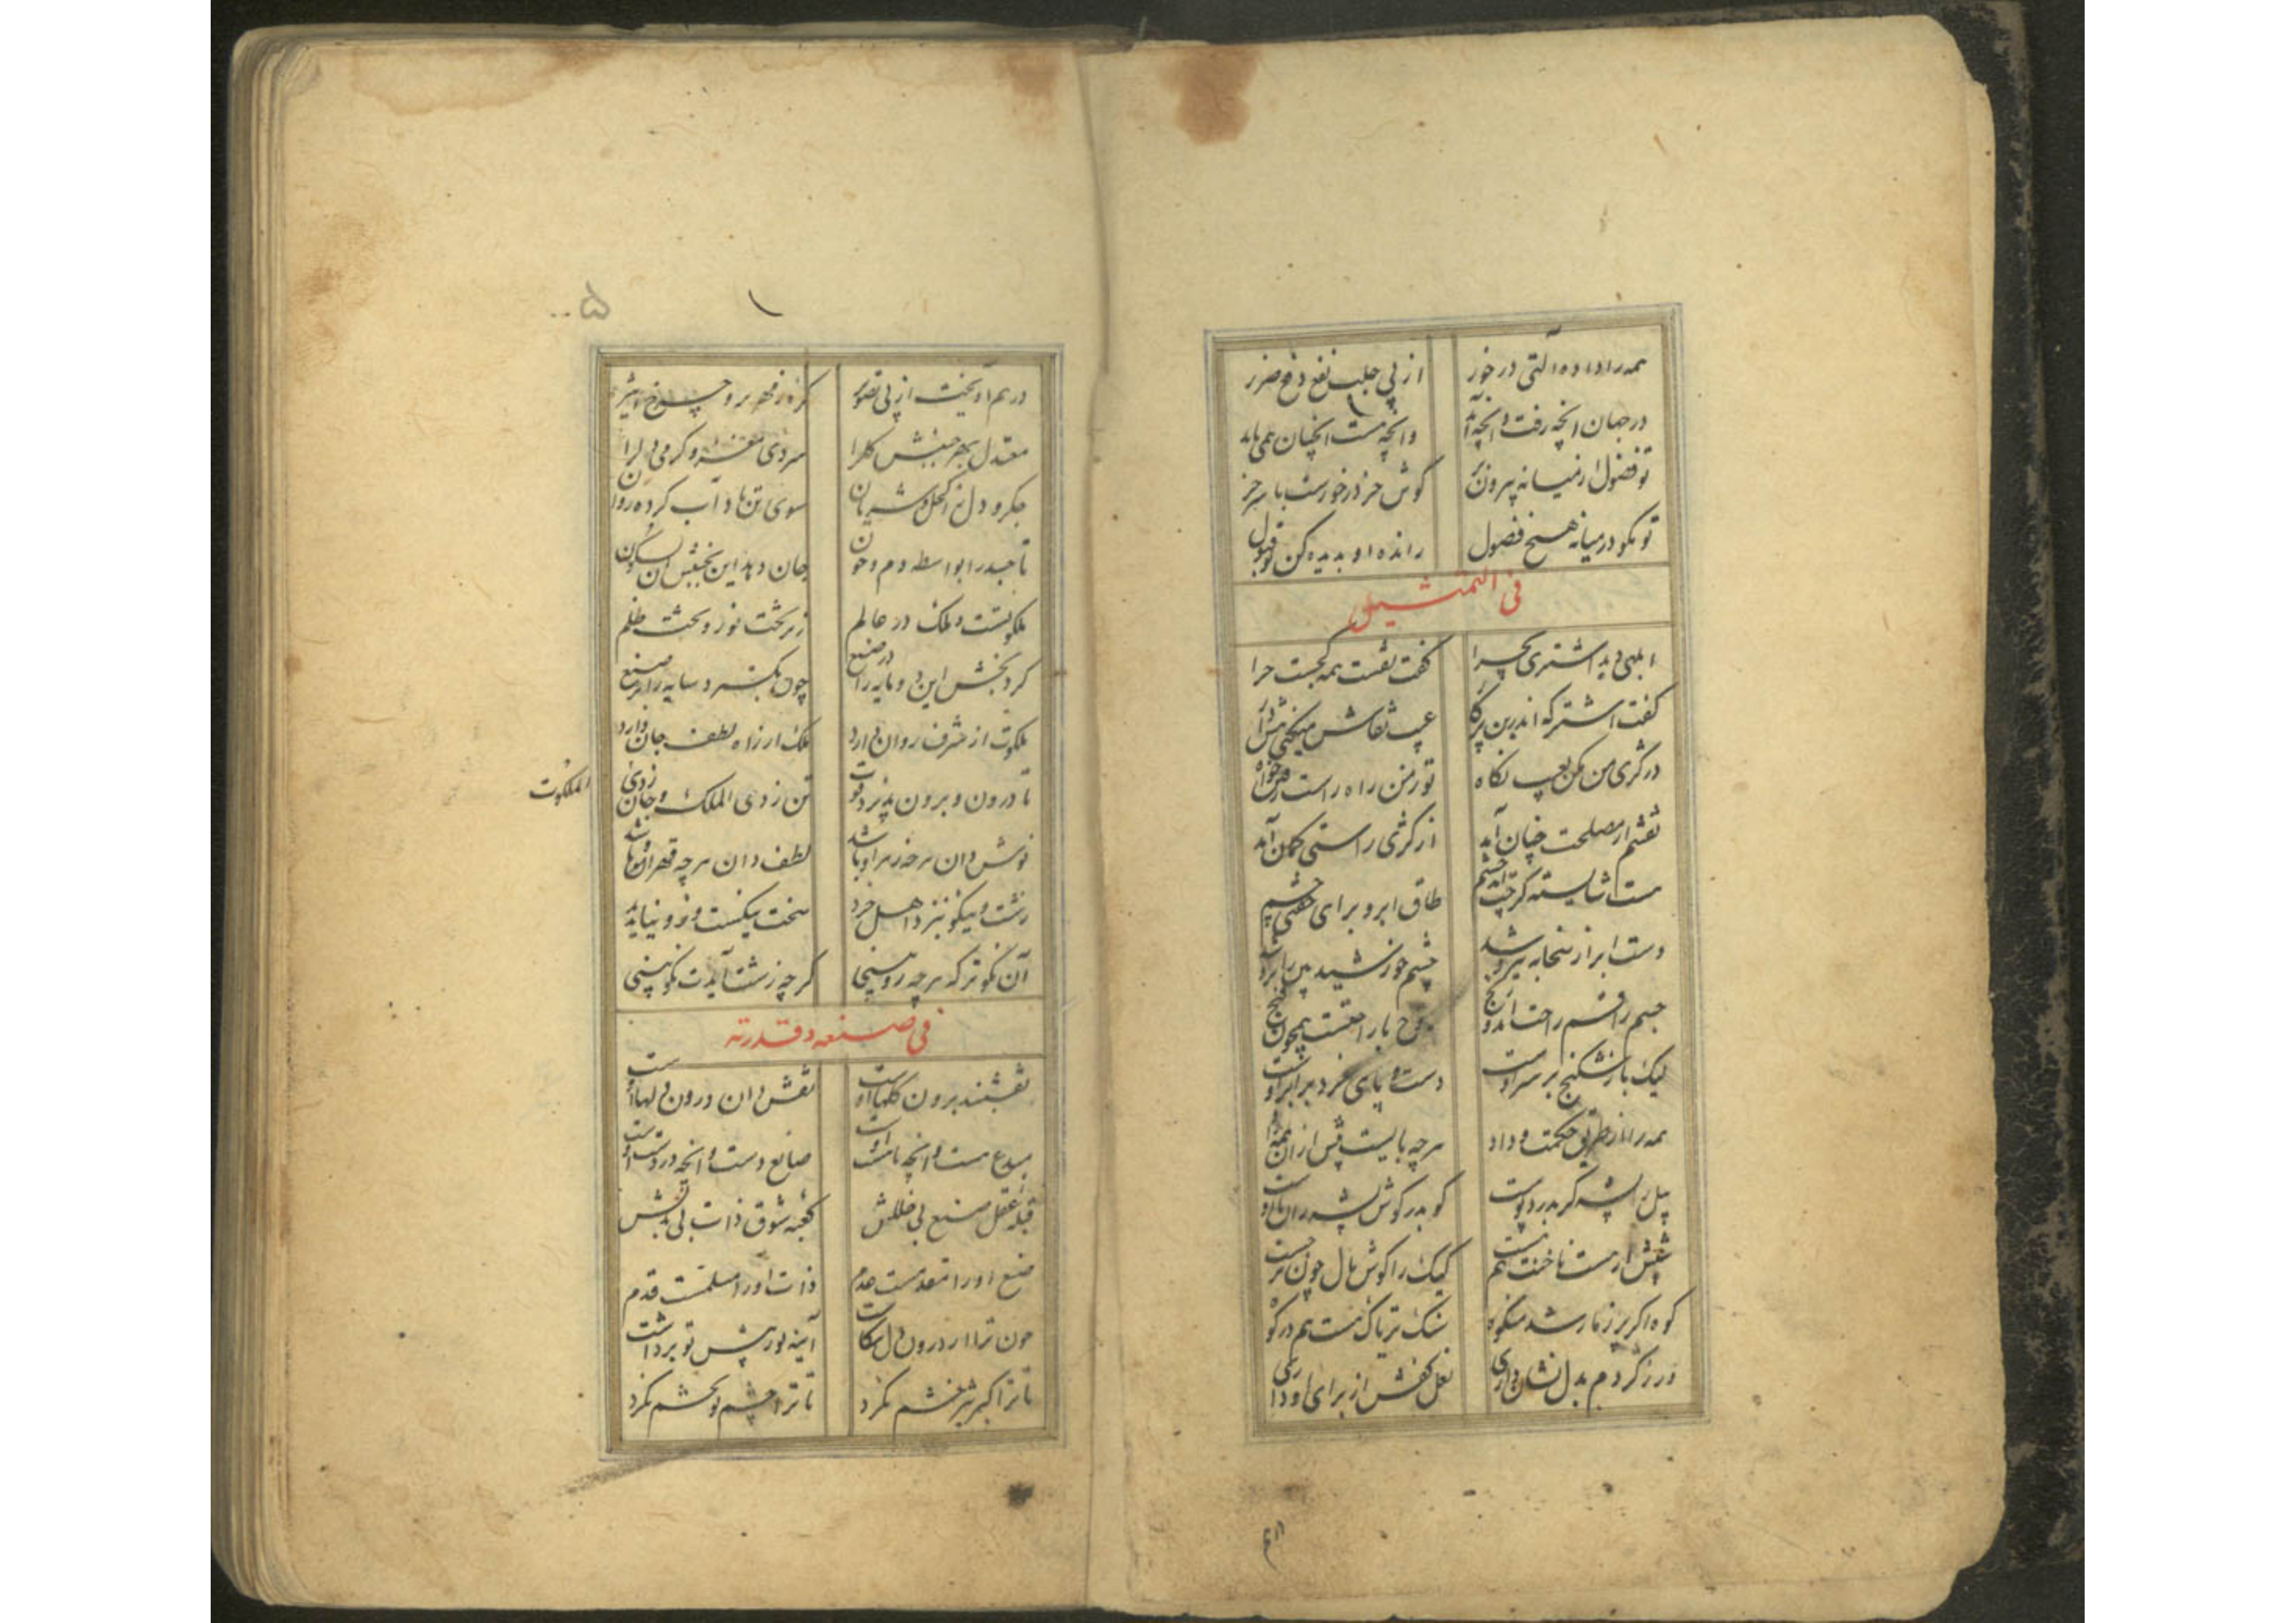 همه را داده آلتی در خور از پی جلب نفع و دفع ضرر
در جهان انچه رفت وانچه آید وانچه هست انچنان همی باید
تو فضول از میانه بیرون بر گوش خر در خورست با سر خر
تو مکو در میانه هیچ فضول رانده او بدیده کن تو قبول
فی التمثیل
ابلهی دید اشتری بچرا گفت نقشت همه کجست چرا
گفت اشتر که اندرین پیکار عیب نقاش میکنی هش دار
در کژی من مکن بعیب نکاه تو ز من راه راست رفتن خواه
نقشم از مصلحت چنان آمد از کژی راستی کمان آمد
هست شایسته گرچه آمد خشم طاق ابرو برای جفتی چشم
دست ابر از سخا به نیرو شد چشم خورشید بین
جسم را قسم راحت آمد و رنج روح را راحتست همچون گنج
لیک مار شکنج بر سر اوست دست و پای خرد برابر اوست
همه را از طریق حکمت و داد هرچه بایست پیش از آن همه داد
پیل را پشه گر بدرد پوست گو بدر گوش پشه ران با اوست
شپش ار هست ناخنت هم هست کیک را گوش مال چون برجست
کوه اگر پر ز مار شد مشکوه سنگ تریاک هست هم در کوه
ور ز کژدم بدل نشان داری نعل کفش از برای او داری
۱
۵..
در هم آویخت از پی تصویر کره زمهریر و چرخ اثیر
معتدل بهر جنبش کل را سردی مغز و گرمی دل را
جگر و دل ز اکحل و شریان سوی تن باد و آب کرده روان
تا جسد را بواسطه دم و خون جان دهد این بجنبش آن بسکون
ملکوتست و ملک در عالم زبر تخت نور و تخت ظلم
کرد بخش این دو مایه را در صنع چون بگسترد سایه را بر صنع
ملکوت از شرف روان دارد ملک از راه لطف جان دارد
تا درون و برون پذیرد قوت تن ز ذی الملک و جان ز ذی
الملکوت
نوش دان هرچه زهر او باشد لطف دان هرچه قهر او باشد
زشت و نیکو بنزد اهل خرد سخت نیکست ازو نیاید بد
آن نکوتر که هرچه زو بینی گرچه زشت آیدت نکو بینی
فی صنعه و قدرته
نقشبند برون گلها اوست نقش دان درون دلها اوست
مبدع هست و انچه ناهست اوست صانع دست و انچه در دست اوست
قبله عقل صنع بی خللش کعبه شوق ذات بی بدلش
صنع او را مقدمست عدم ذات او را مسلمست قدم
چون ترا از درون دل نگاشت آینه نور پیش تو برداشت
تا ترا کبر تیز خشم نکرد تا ترا چشم تو بخشم نکرد